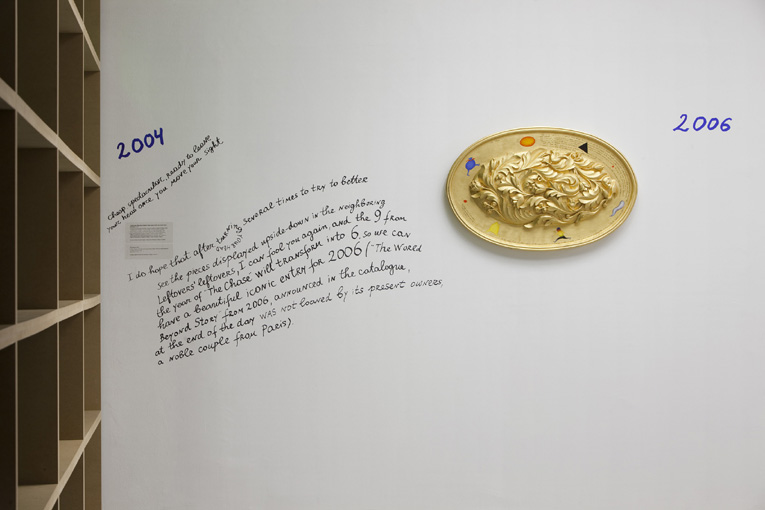 2004
cheap speduchn, ready to leave
your head once you move your sight
I do hope that after turning several times to try to better
your head
see the pieces displayed upside-down in the neighboring
Leftovers' leftovers, I can fool you again, and the 9 from
the year of The Chase will transform into 6, so we can
have a beautiful iconic entry for 2006 ("The World
Beyond Story" from 2006, announced in the catalogue,
at the end of the day was not loaned by its present owners,
a noble couple from Paris).
2006